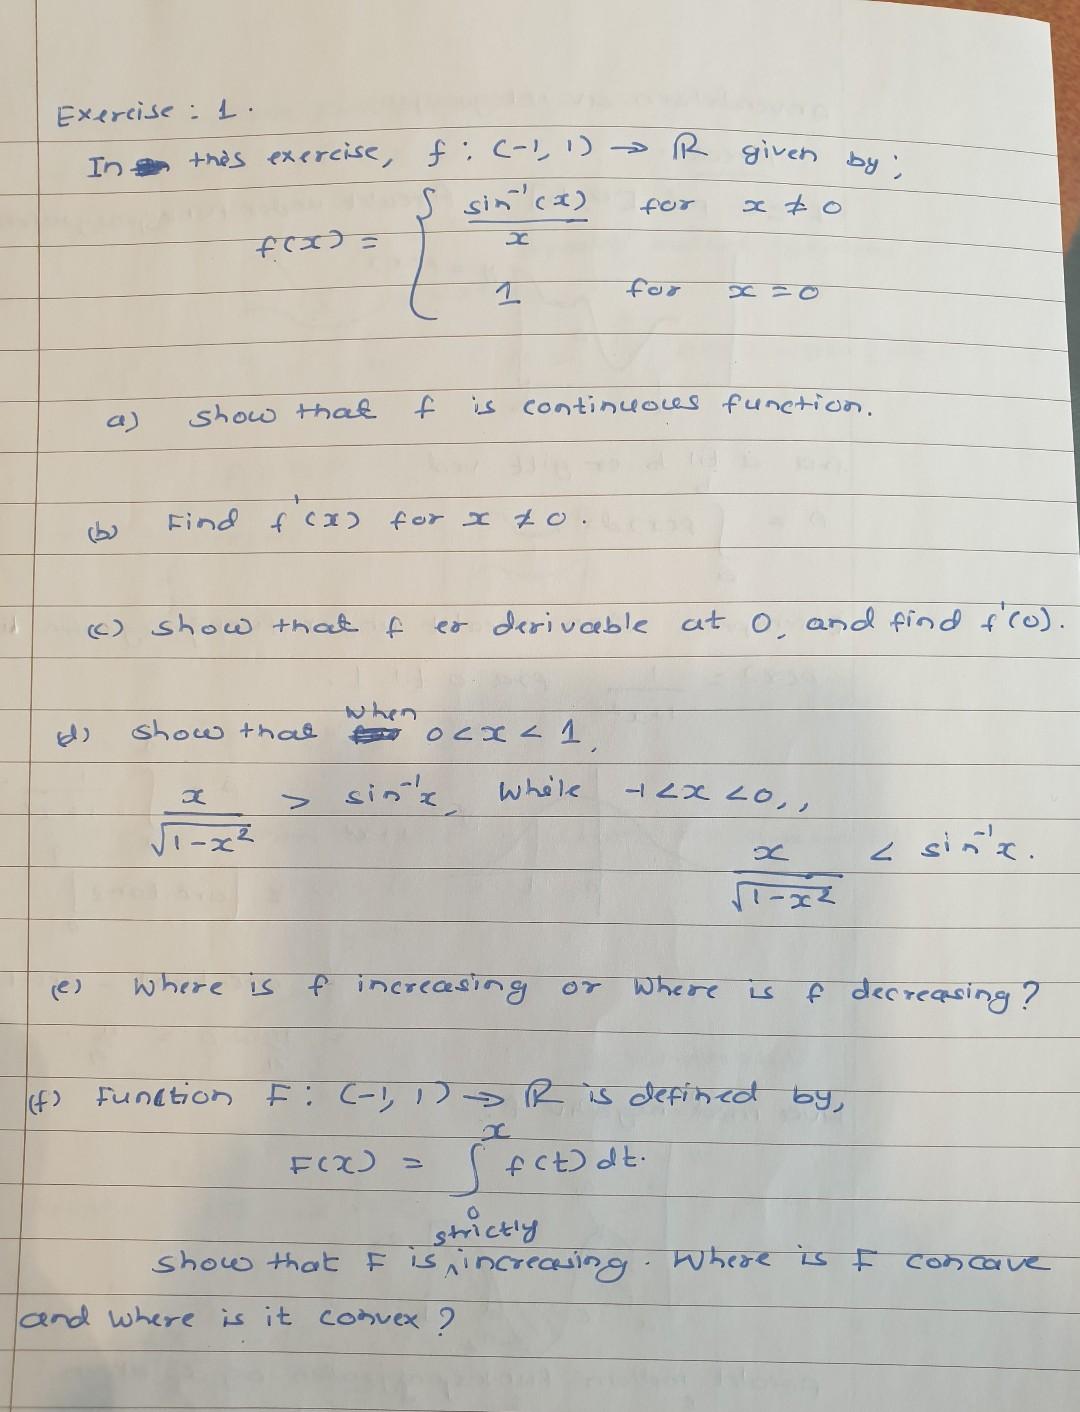 Exercise : 1.
In this exercise, f : (-1, 1) → ℝ given by;
f(x) = { sin⁻¹(x) / x for x ≠ 0
1 for x = 0
a) show that f is continuous function.
(b) Find f'(x) for x ≠ 0.
(c) show that f er derivable at 0, and find f'(0).
d) show that when 0 < x < 1,
x / √(1-x²) > sin⁻¹x, while -1 < x < 0, ,
x / √(1-x²) < sin⁻¹x.
(e) Where is f increasing or where is f decreasing?
(f) Function F : (-1, 1) → ℝ is defined by,
F(x) = ∫₀ˣ f(t) dt.
show that F is strictly increasing. Where is F concave
and where is it convex?